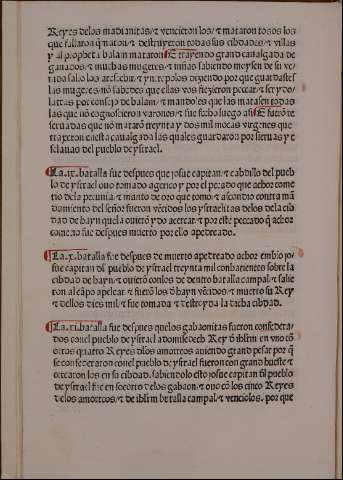 Reyes delos madianitas / τ vencieron los / τ mataron todos los
que fallaron q̄ mator̄ / τ destruyeron todas sus cibdades / τ villas
y al propheta balam mataron E trayendo grand caualgada de
ganados / τ muchas mugeres / τ niños sabiendo moysen de su ve-
nida salio los arescebir / τ yn repolos diziendo por que guardastes
las mugeres / nō sabedes que ellas vos fizieron peccar / τ ser ydo
latras por consejo de balam / τ mandoles que las matasen todas
las que nō cognoscieron varones / τ fue fecho luego asi E fuerō re
seruadas que nō matarō treynta y dos mil moças virgines que
traxeron enesta caualgada las quales guardaron por sieruas y e
sclauas del pueblo de ysrael.
La .ix. batalla fue despues que josue capitan / τ cabdillo del pueb
lo de ysrael ouo tomado a gerico y por el pecado que achor come
tio dela pecunia / τ manto de oro que tomo / τ ascondio contra mā
damiento del señor fueron vēcidos los ysraelitas delos dela cib
dad de hayn que la ouierō y do acercar / τ por este peccado q̄ achor
come no fue despues muerto por ello apedreado.
La .x. batalla fue despues de muerto apedreado achor embio jo
sue capitan dl̄ pueblo de ysrael treynta mil conbatientes sobre la
cibdad de hayn / τ ouierō conlos de dentro batalla campal / τ salie
ron al cāpo apelear / τ fuerō los d̄ hayn vēcidos / τ muerto su Rey
τ dellos dies mil / τ fue tomada / τ destroyda la dicha cibdad.
La .xi. batalla fue despues quelos gabaonitas fueron confedera
dos conel pueblo de ysrael adonisedech Rey d̄ ihrl̄m en vno cō
otros quatro Reyes dlos amorreos auiendo grand pesar por q̄
se confederaron conel pueblo de ysrael fueron con grand hueste / τ
cercaron los en su cibdad. sabiendolo esto josue capitan dl̄ pueblo
de ysrael fue en socorro delos gabaon / τ ouo cō los cinco Reyes
delos amorreos / τ de ihrl̄m batalla campal / τ venciolos. por que